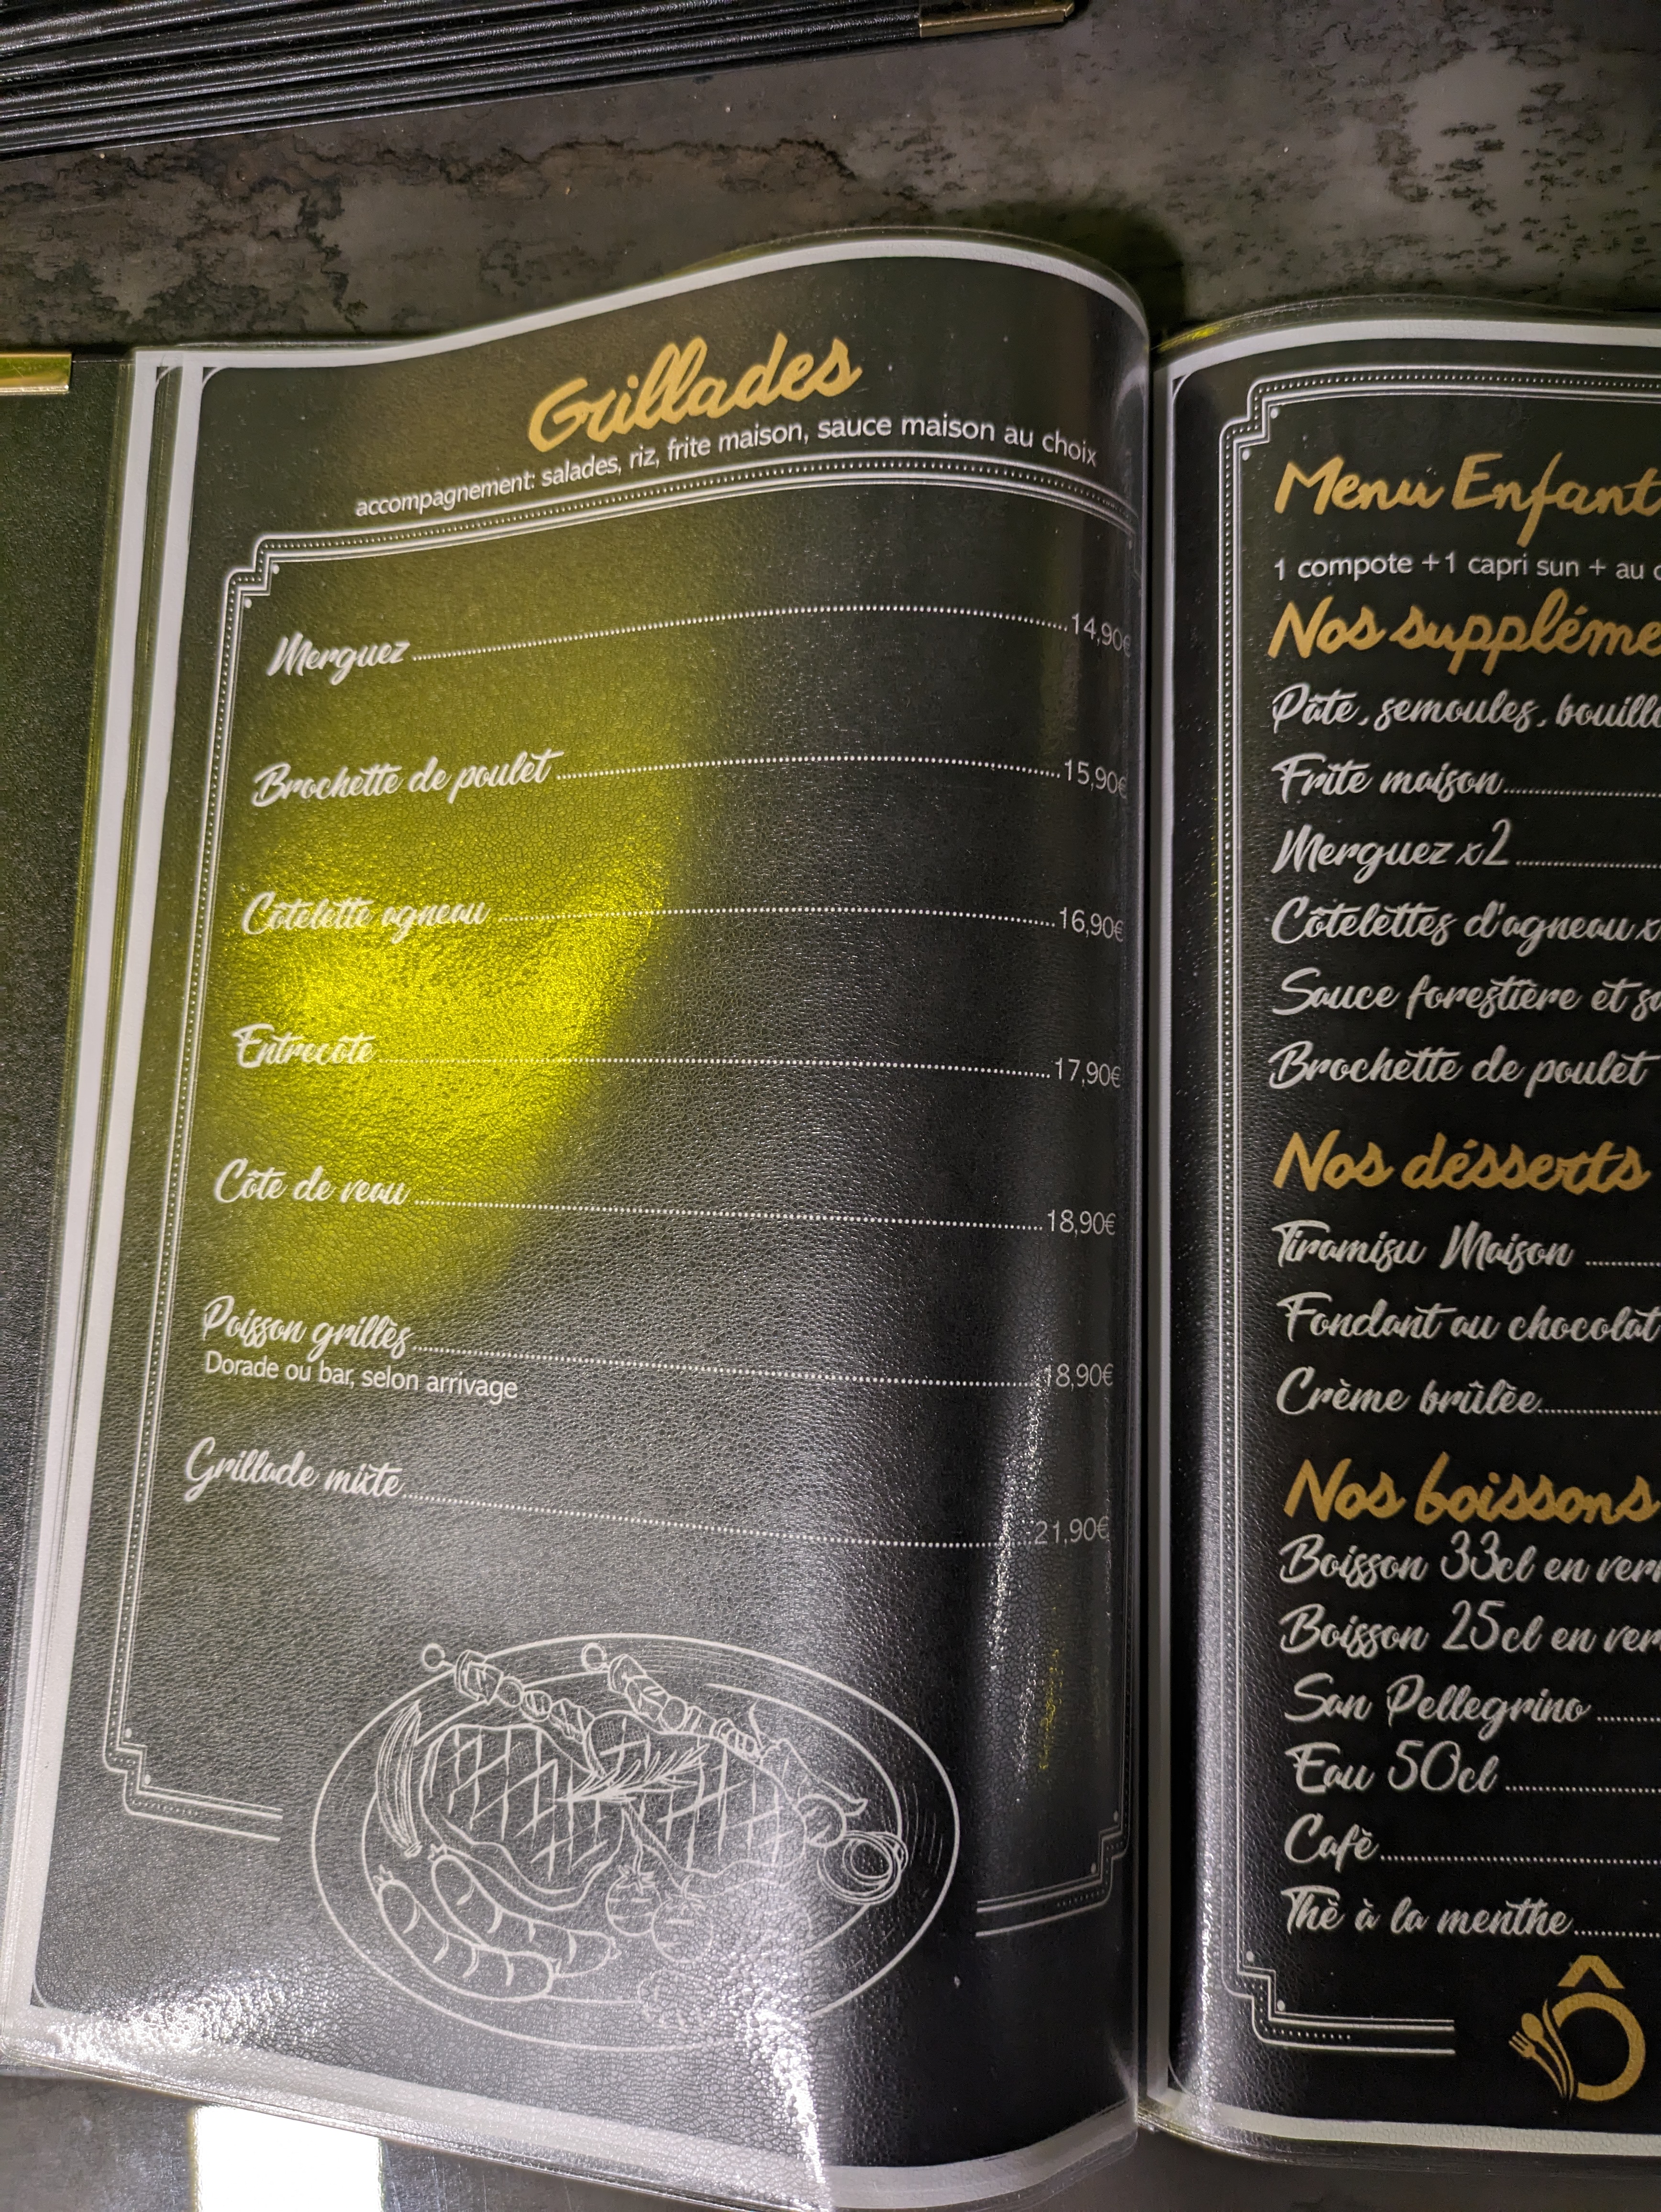 Grillades
accompagnement: salades, riz, frite maison, sauce maison au choix
Merguez 14,90€
Brochette de poulet 15,90€
Côtelette agneau 16,90€
Entrecôte 17,90€
Côte de veau 18,90€
Poisson grillès 18,90€
Dorade ou bar, selon arrivage
Grillade mixte 21,90€
Menu Enfant
1 compote +1 capri sun + au
Nos
Pâte, semoules,
Frite maison
Merguez x2
Côtelettes d'agneau
Sauce forestière et
Brochette de poulet
Nos désserts
Tiramisu Maison
Fondant au chocolat
Crème brûlèe
Nos boissons
Boisson 33cl en
Boisson 25cl en
San Pellegrino
Eau 50cl
Cafè
Thè à la menthe
Ô